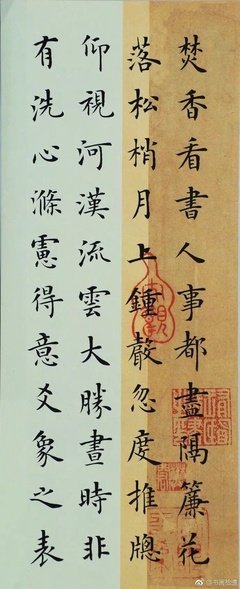 焚香看書人事都盡隔簾花
落松梢月上鍾聲忽度推牕
仰視河漢流雲大勝晝時非
有洗心滌慮得意爻象之表
@书画拾遗